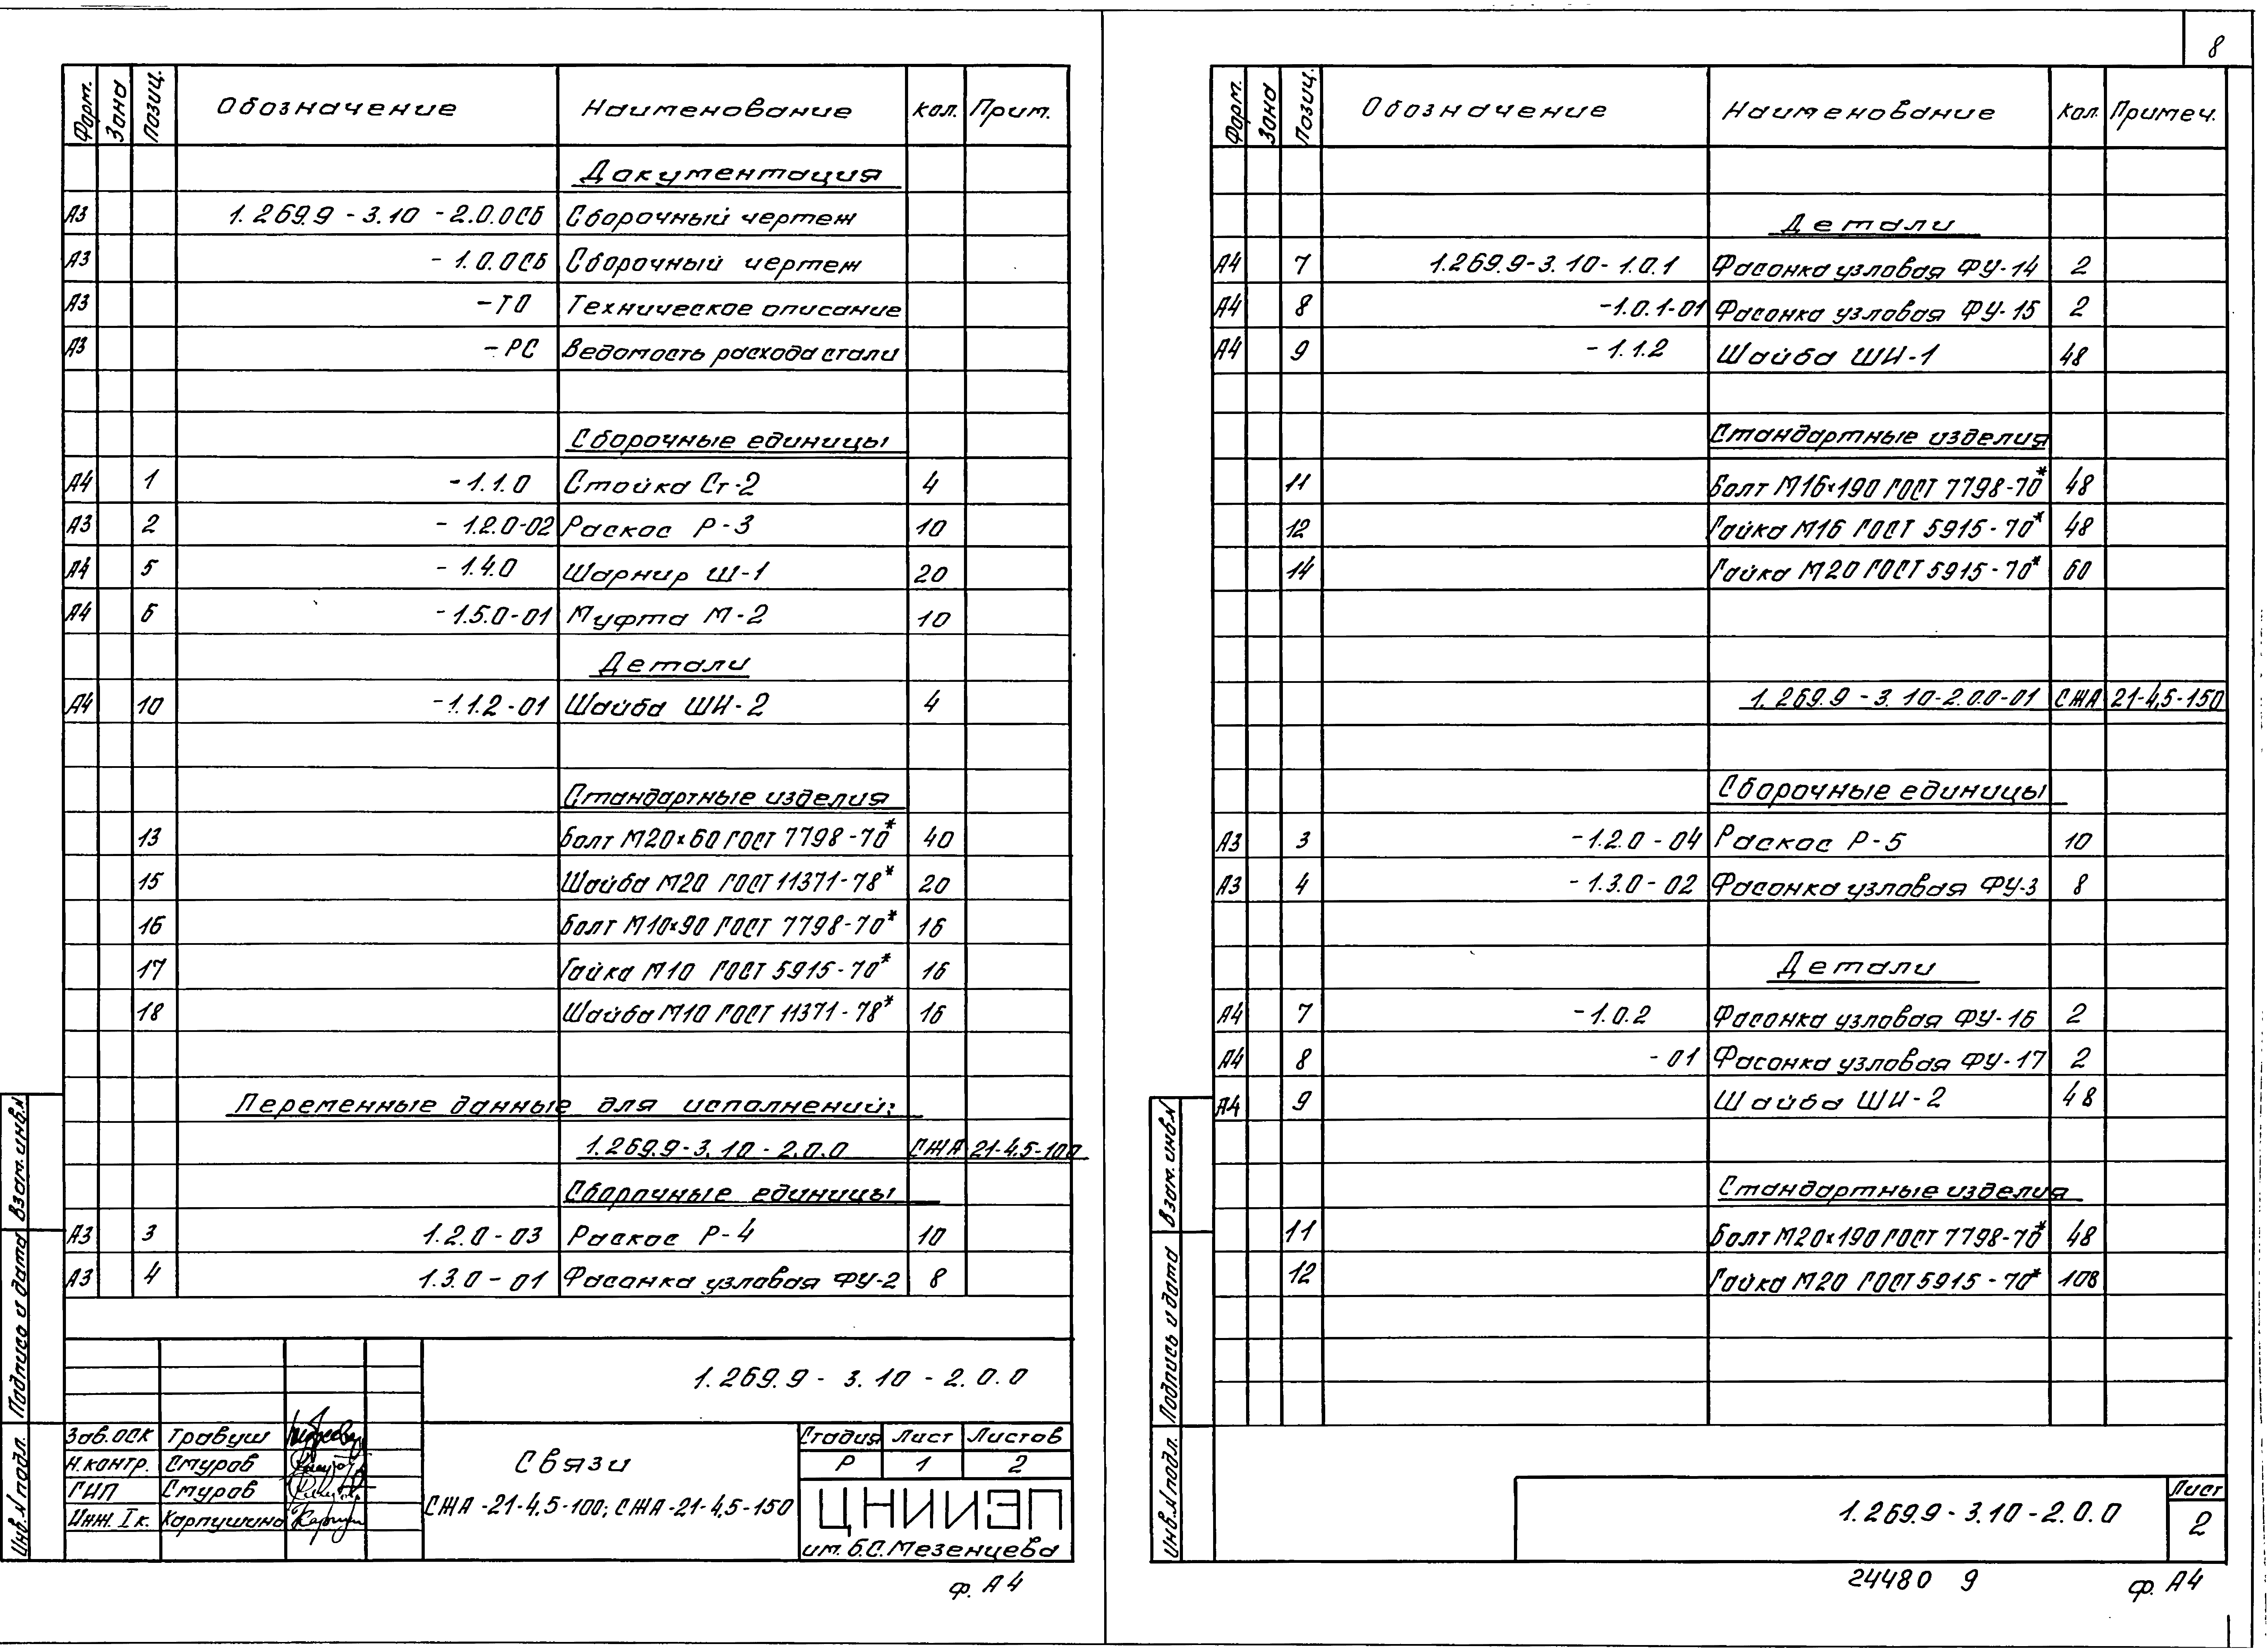 Форм. Зона Позиц. Обозначение Наименование Кол. Прим.
Документация
А3 1.269.9-3.10-2.0.0СБ Сборочный чертеж
А3 -1.0.0СБ Сборочный чертеж
А3 -ТО Техническое описание
А3 -РС Ведомость расхода стали
Сборочные единицы
А4 1 -1.1.0 Стойка Ст-2 4
А3 2 -1.2.0-02 Раскос Р-3 10
А4 5 -1.4.0 Шарнир Ш-1 20
А4 6 -1.5.0-01 Муфта М-2 10
Детали
А4 10 -1.1.2-01 Шайба ШИ-2 4
Стандартные изделия
13 Болт М20×60 ГОСТ 7798-70* 40
15 Шайба М20 ГОСТ 11371-78* 20
16 Болт М10×90 ГОСТ 7798-70* 16
17 Гайка М10 ГОСТ 5915-70* 16
18 Шайба М10 ГОСТ 11371-78* 16
Переменные данные для исполнений:
1.269.9-3.10-2.0.0 СЖА 21-4,5-100
Сборочные единицы
А3 3 1.2.0-03 Раскос Р-4 10
А3 4 1.3.0-01 Фасонка узловая ФУ-2 8
Инв.N подл. Подпись и дата Взам.инв.N
1.269.9-3.10-2.0.0
Зав.ОСК Травуш
Н.контр. Смуров
ГИП Смуров
Инж. I к. Карпушина
Связи
СЖА-21-4,5-100; СЖА-21-4,5-150
Стадия Лист Листов
Р 1 2
ЦНИИЭП
им. Б.С.Мезенцева
ф. А4
8
Форм. Зона Позиц. Обозначение Наименование Кол. Примеч.
Детали
А4 7 1.269.9-3.10-1.0.1 Фасонка узловая ФУ-14 2
А4 8 -1.0.1-01 Фасонка узловая ФУ-15 2
А4 9 -1.1.2 Шайба ШИ-1 48
Стандартные изделия
11 Болт М16×190 ГОСТ 7798-70* 48
12 Гайка М16 ГОСТ 5915-70* 48
14 Гайка М20 ГОСТ 5915-70* 60
1.269.9-3.10-2.0.0-01 СЖА 21-4,5-150
Сборочные единицы
А3 3 -1.2.0-04 Раскос Р-5 10
А3 4 -1.3.0-02 Фасонка узловая ФУ-3 8
Детали
А4 7 -1.0.2 Фасонка узловая ФУ-16 2
А4 8 -01 Фасонка узловая ФУ-17 2
А4 9 Шайба ШИ-2 48
Стандартные изделия
11 Болт М20×190 ГОСТ 7798-70* 48
12 Гайка М20 ГОСТ 5915-70* 108
Инв.N подл. Подпись и дата Взам.инв.N
1.269.9-3.10-2.0.0
Лист
2
24480 9
ф. А4